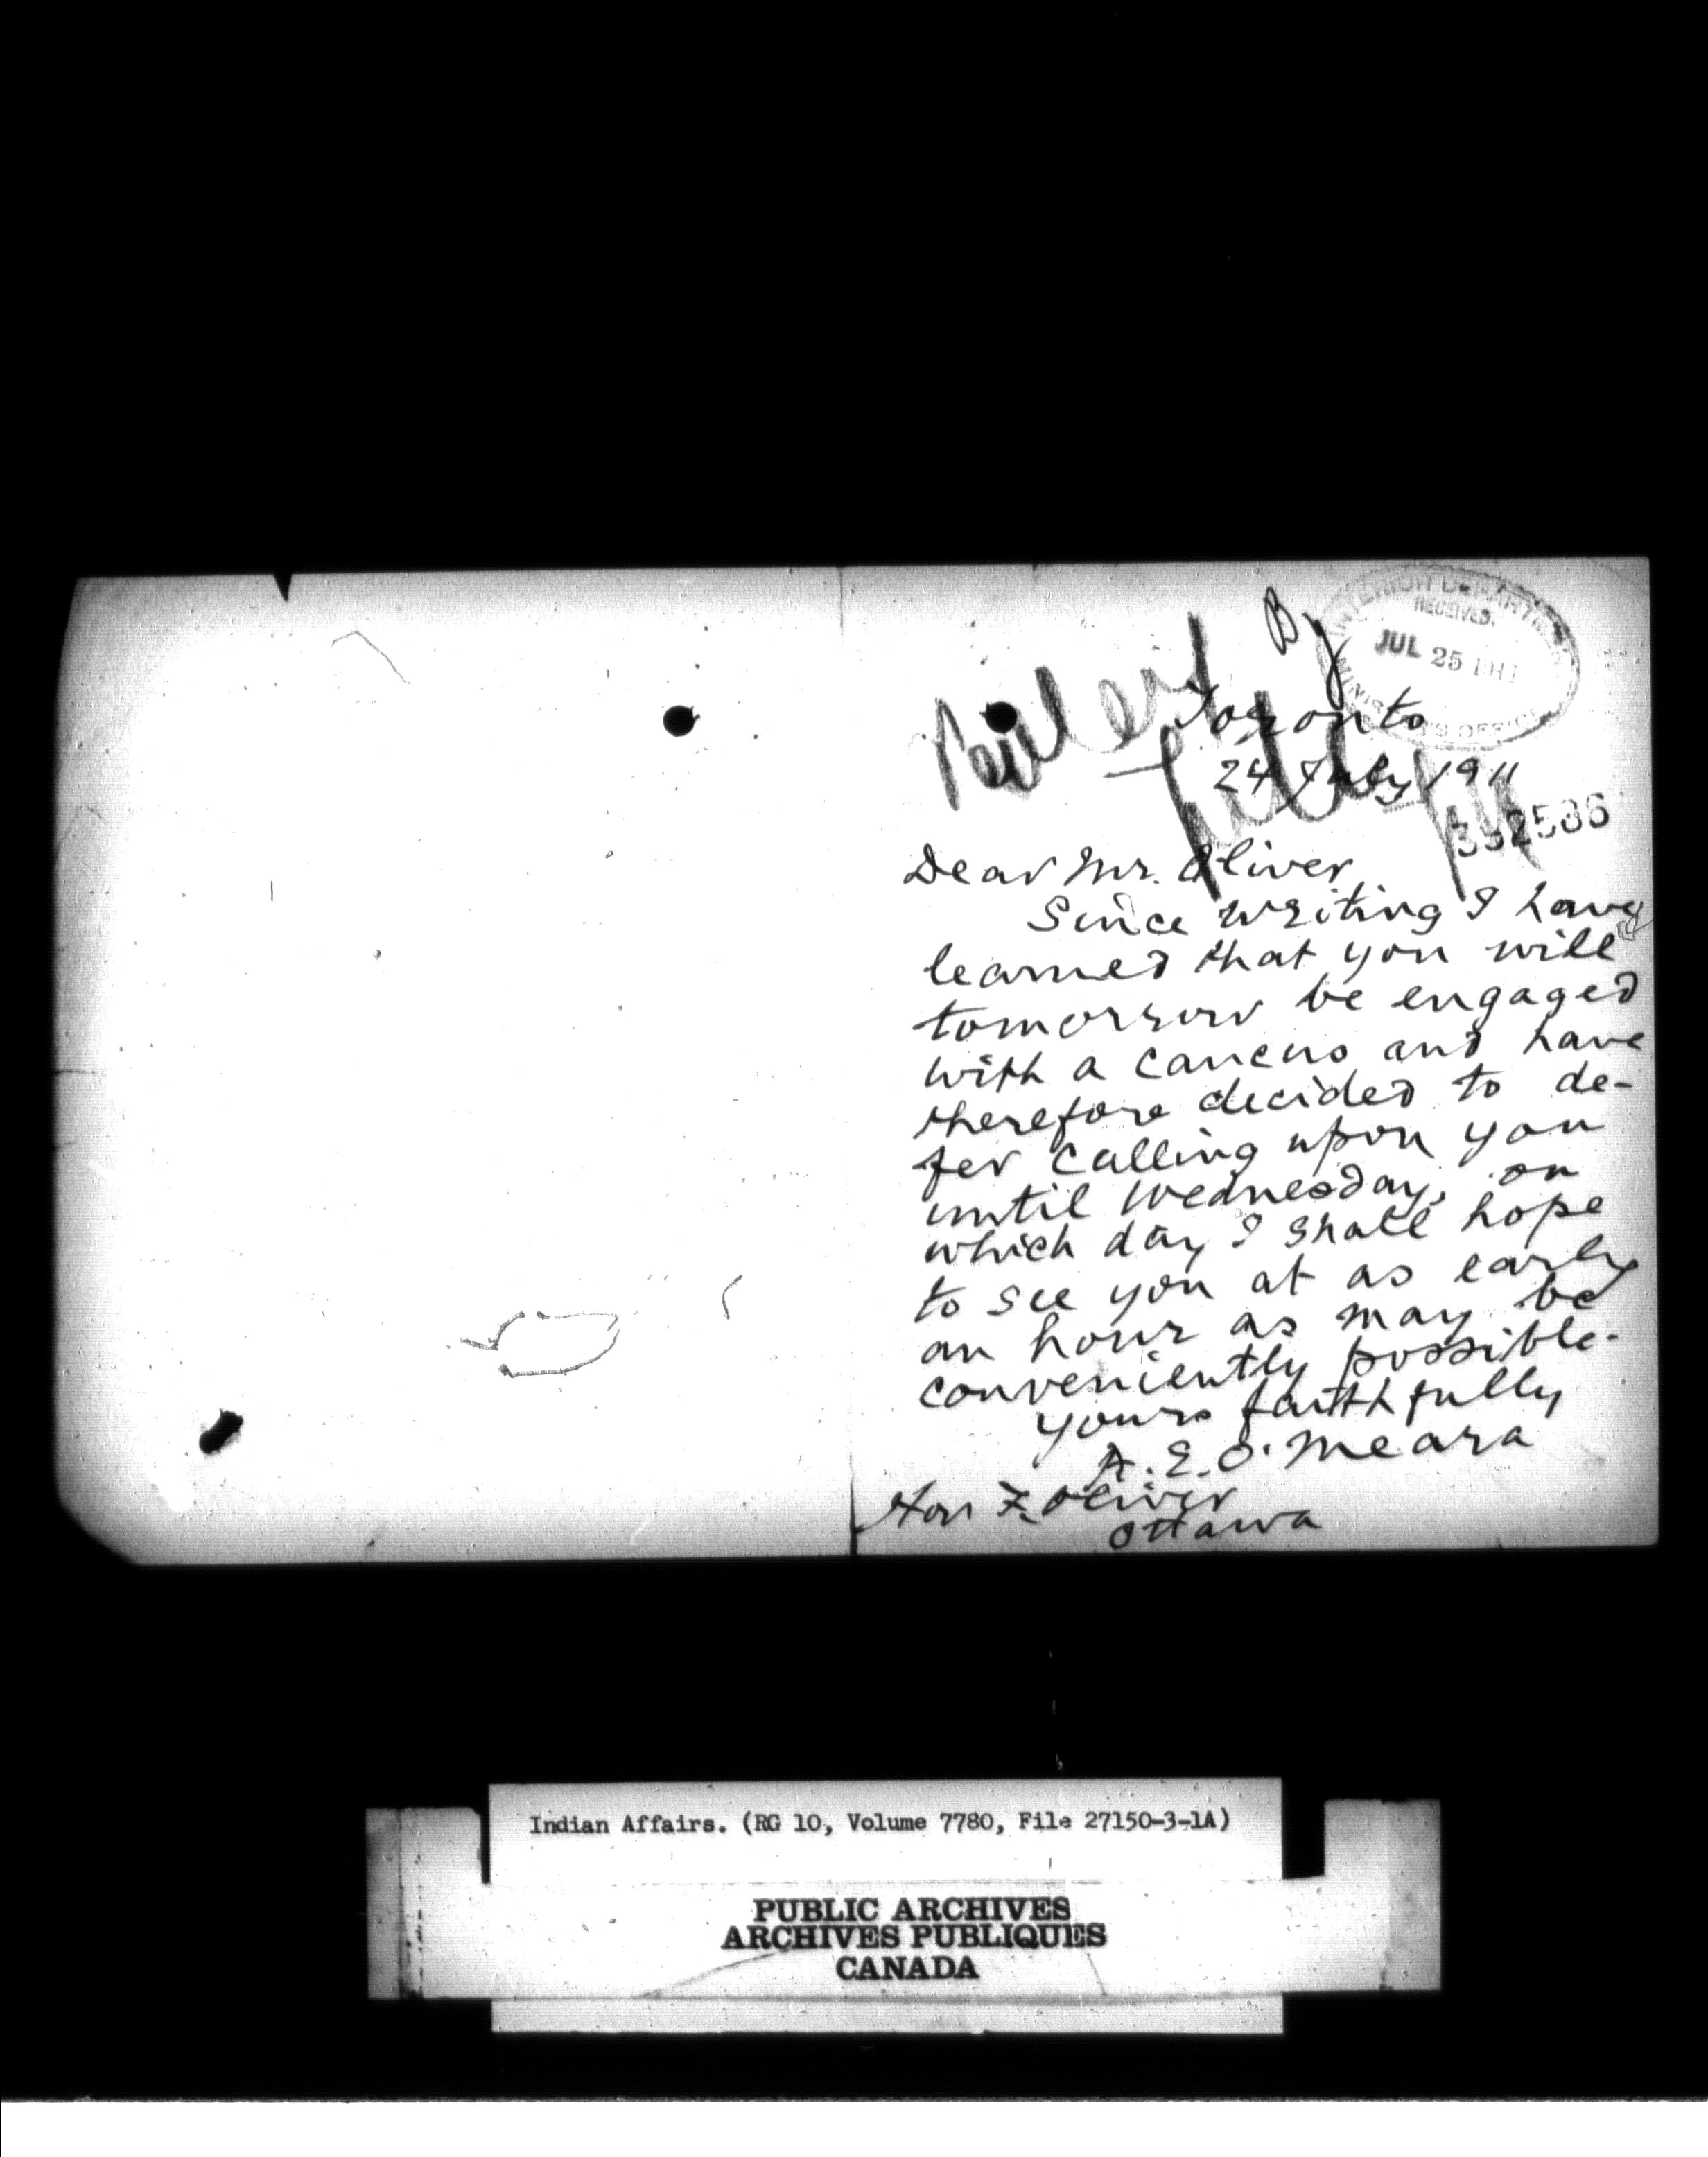 By
INTERIOR DEPARTMENT
RECEIVED.
JUL 25 1911
MINISTER'S OFFICE
Toronto
24 July 1911
Dear Mr. Oliver
Since writing I have
learned that you will
tomorrow be engaged
with a caucus and have
therefore decided to de-
fer calling upon you
until Wednesday, on
which day I shall hope
to see you at as early
an hour as may be
conveniently possible.
yours faithfully
A. E. O'Meara
Hon F. Oliver
Ottawa
Indian Affairs. (RG 10, Volume 7780, File 27150-3-1A)
PUBLIC ARCHIVES
ARCHIVES PUBLIQUES
CANADA